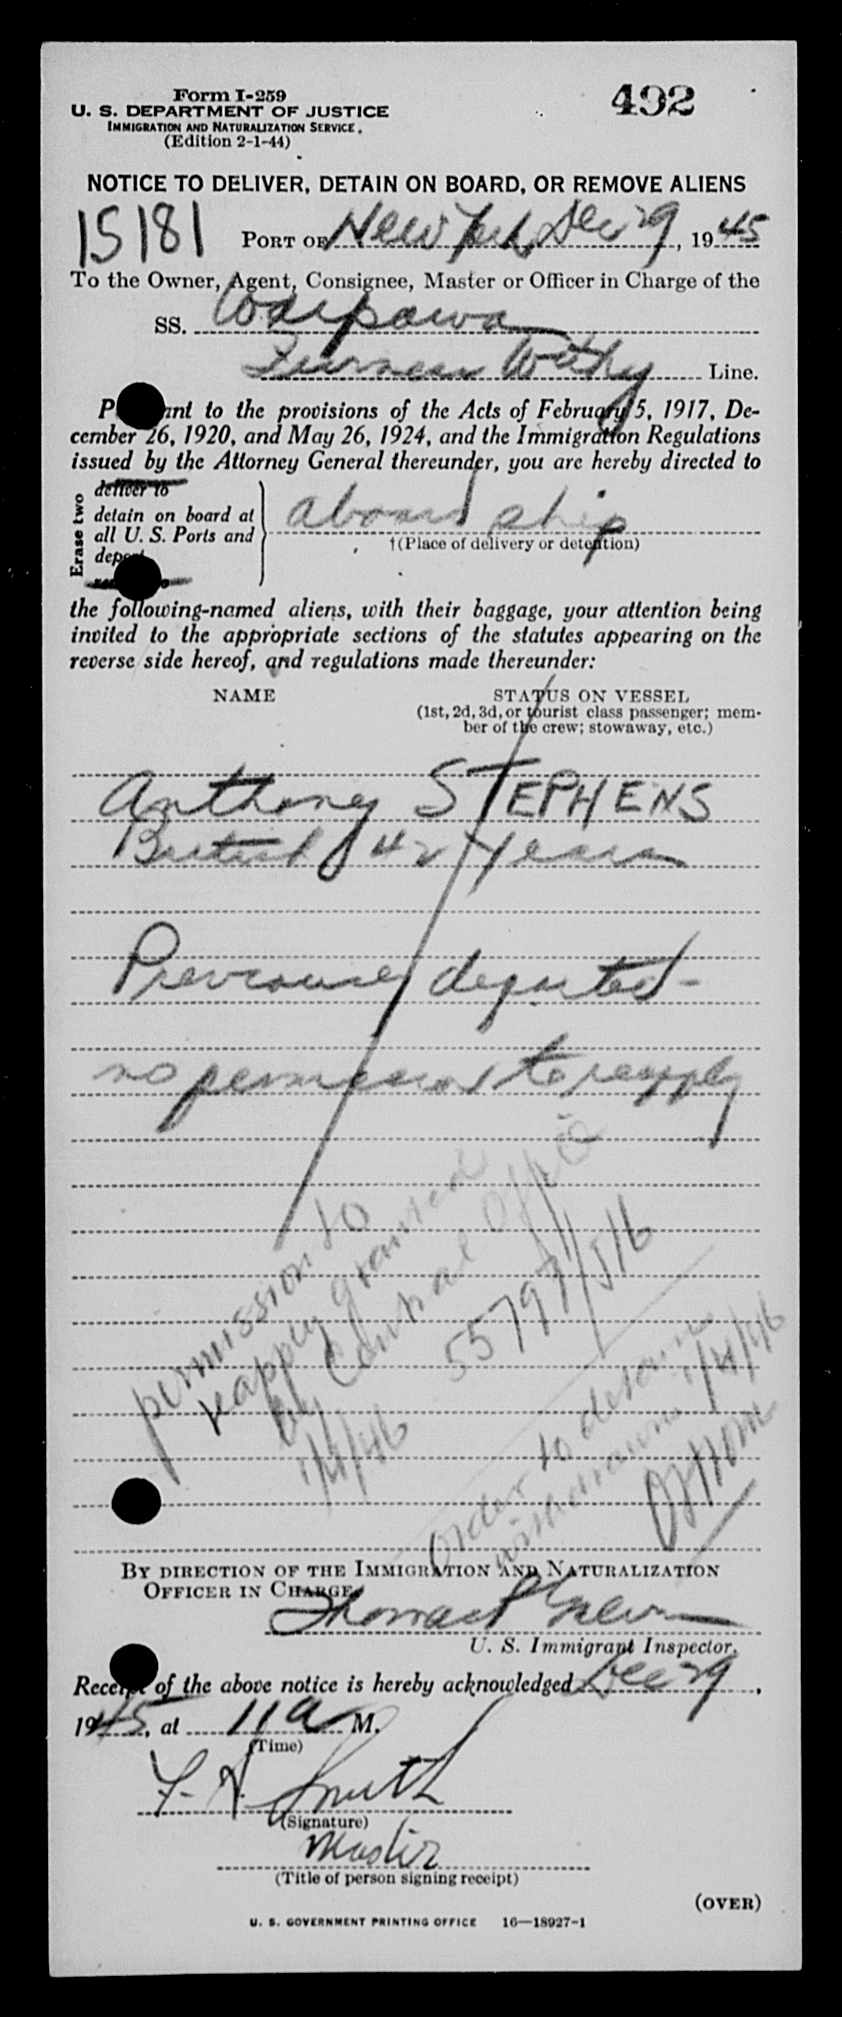 Form I-259
492
U. S. DEPARTMENT OF JUSTICE
IMMIGRATION AND NATURALIZATION SERVICE
(Edition 2-1-44)
NOTICE TO DELIVER, DETAIN ON BOARD, OR REMOVE ALIENS
15181
PORT OF New York Dec 29, 1945
To the Owner, Agent, Consignee, Master or Officer in Charge of the
SS. Waipawa
Furness Withy Line.
P ant to the provisions of the Acts of February 5, 1917, De-
cember 26, 1920, and May 26, 1924, and the Immigration Regulations
issued by the Attorney General thereunder, you are hereby directed to
Erase two
deliver to
detain on board at
all U. S. Ports and
aboard ship
†(Place of delivery or detention)
the following-named aliens, with their baggage, your attention being
invited to the appropriate sections of the statutes appearing on the
reverse side hereof, and regulations made thereunder:
NAME
STATUS ON VESSEL
(1st, 2d, 3d, or tourist class passenger; mem-
ber of the crew; stowaway, etc.)
Anthony STEPHENS
British 42 years
Previously deported -
no permission to reapply
permission to
reapply granted
by Central Office
1/4/46 55797/516
Order to detain
withdrawn 1/4/46
BY DIRECTION OF THE IMMIGRATION AND NATURALIZATION
OFFICER IN CHARGE,
Thomas P
U. S. Immigrant Inspector.
Receipt of the above notice is hereby acknowledged Dec 29,
1945, at 11 a M.
(Time)
F. H. Smith
(Signature)
Master
(Title of person signing receipt)
(OVER)
U. S. GOVERNMENT PRINTING OFFICE 16—18927-1